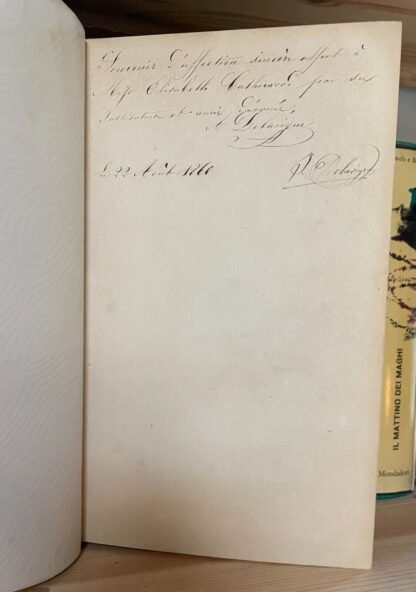 Souvenir d'affection sincère offert à
Miss Elisabeth par ses
et amie dévoués,
A Delavigne
Le 22 Août 1860
Delavigne
IL MATTINO DEI MAGHI
Mondadori